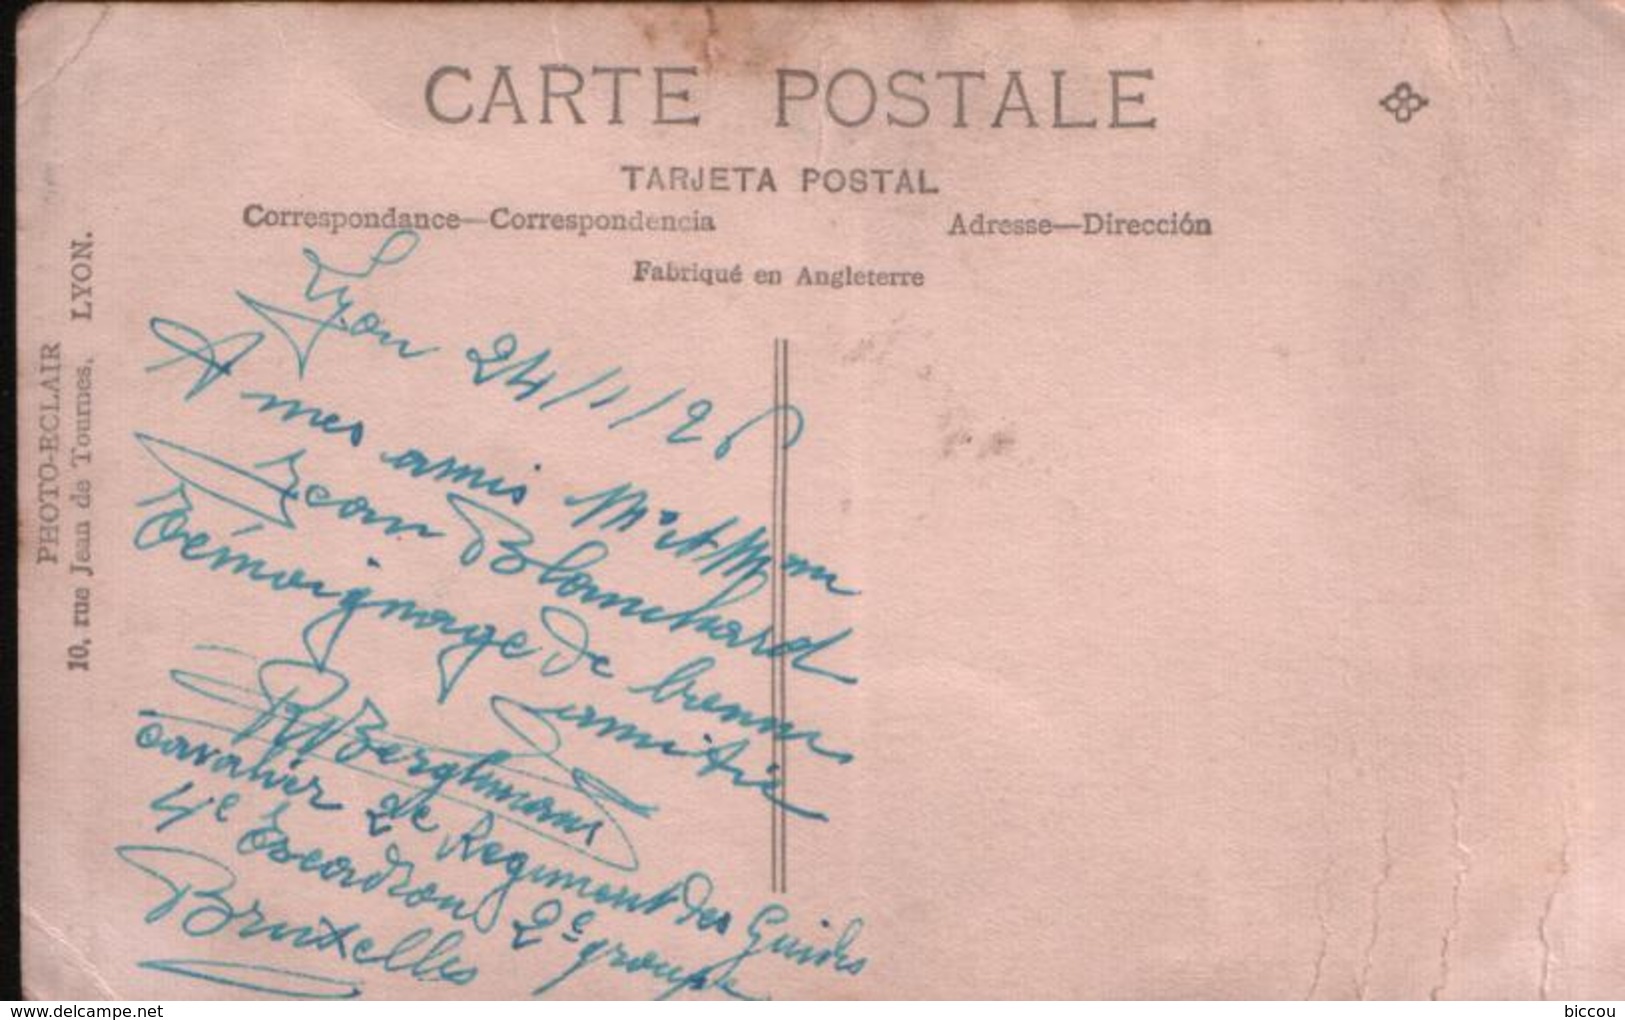 CARTE POSTALE
TARJETA POSTAL
Correspondance—Correspondencia
Adresse—Dirección
Fabriqué en Angleterre
PHOTO-ECLAIR
10, rue Jean de Tournes, LYON.
Lyon 24/1/26
A mes amis Mr et Mme
Jean Blanchard
témoignage de bonne
amitié
Berghmans
cavalier 2e Regiment des Guides
4e Escadron 2e groupe
Bruxelles
delcampe.net
biccou